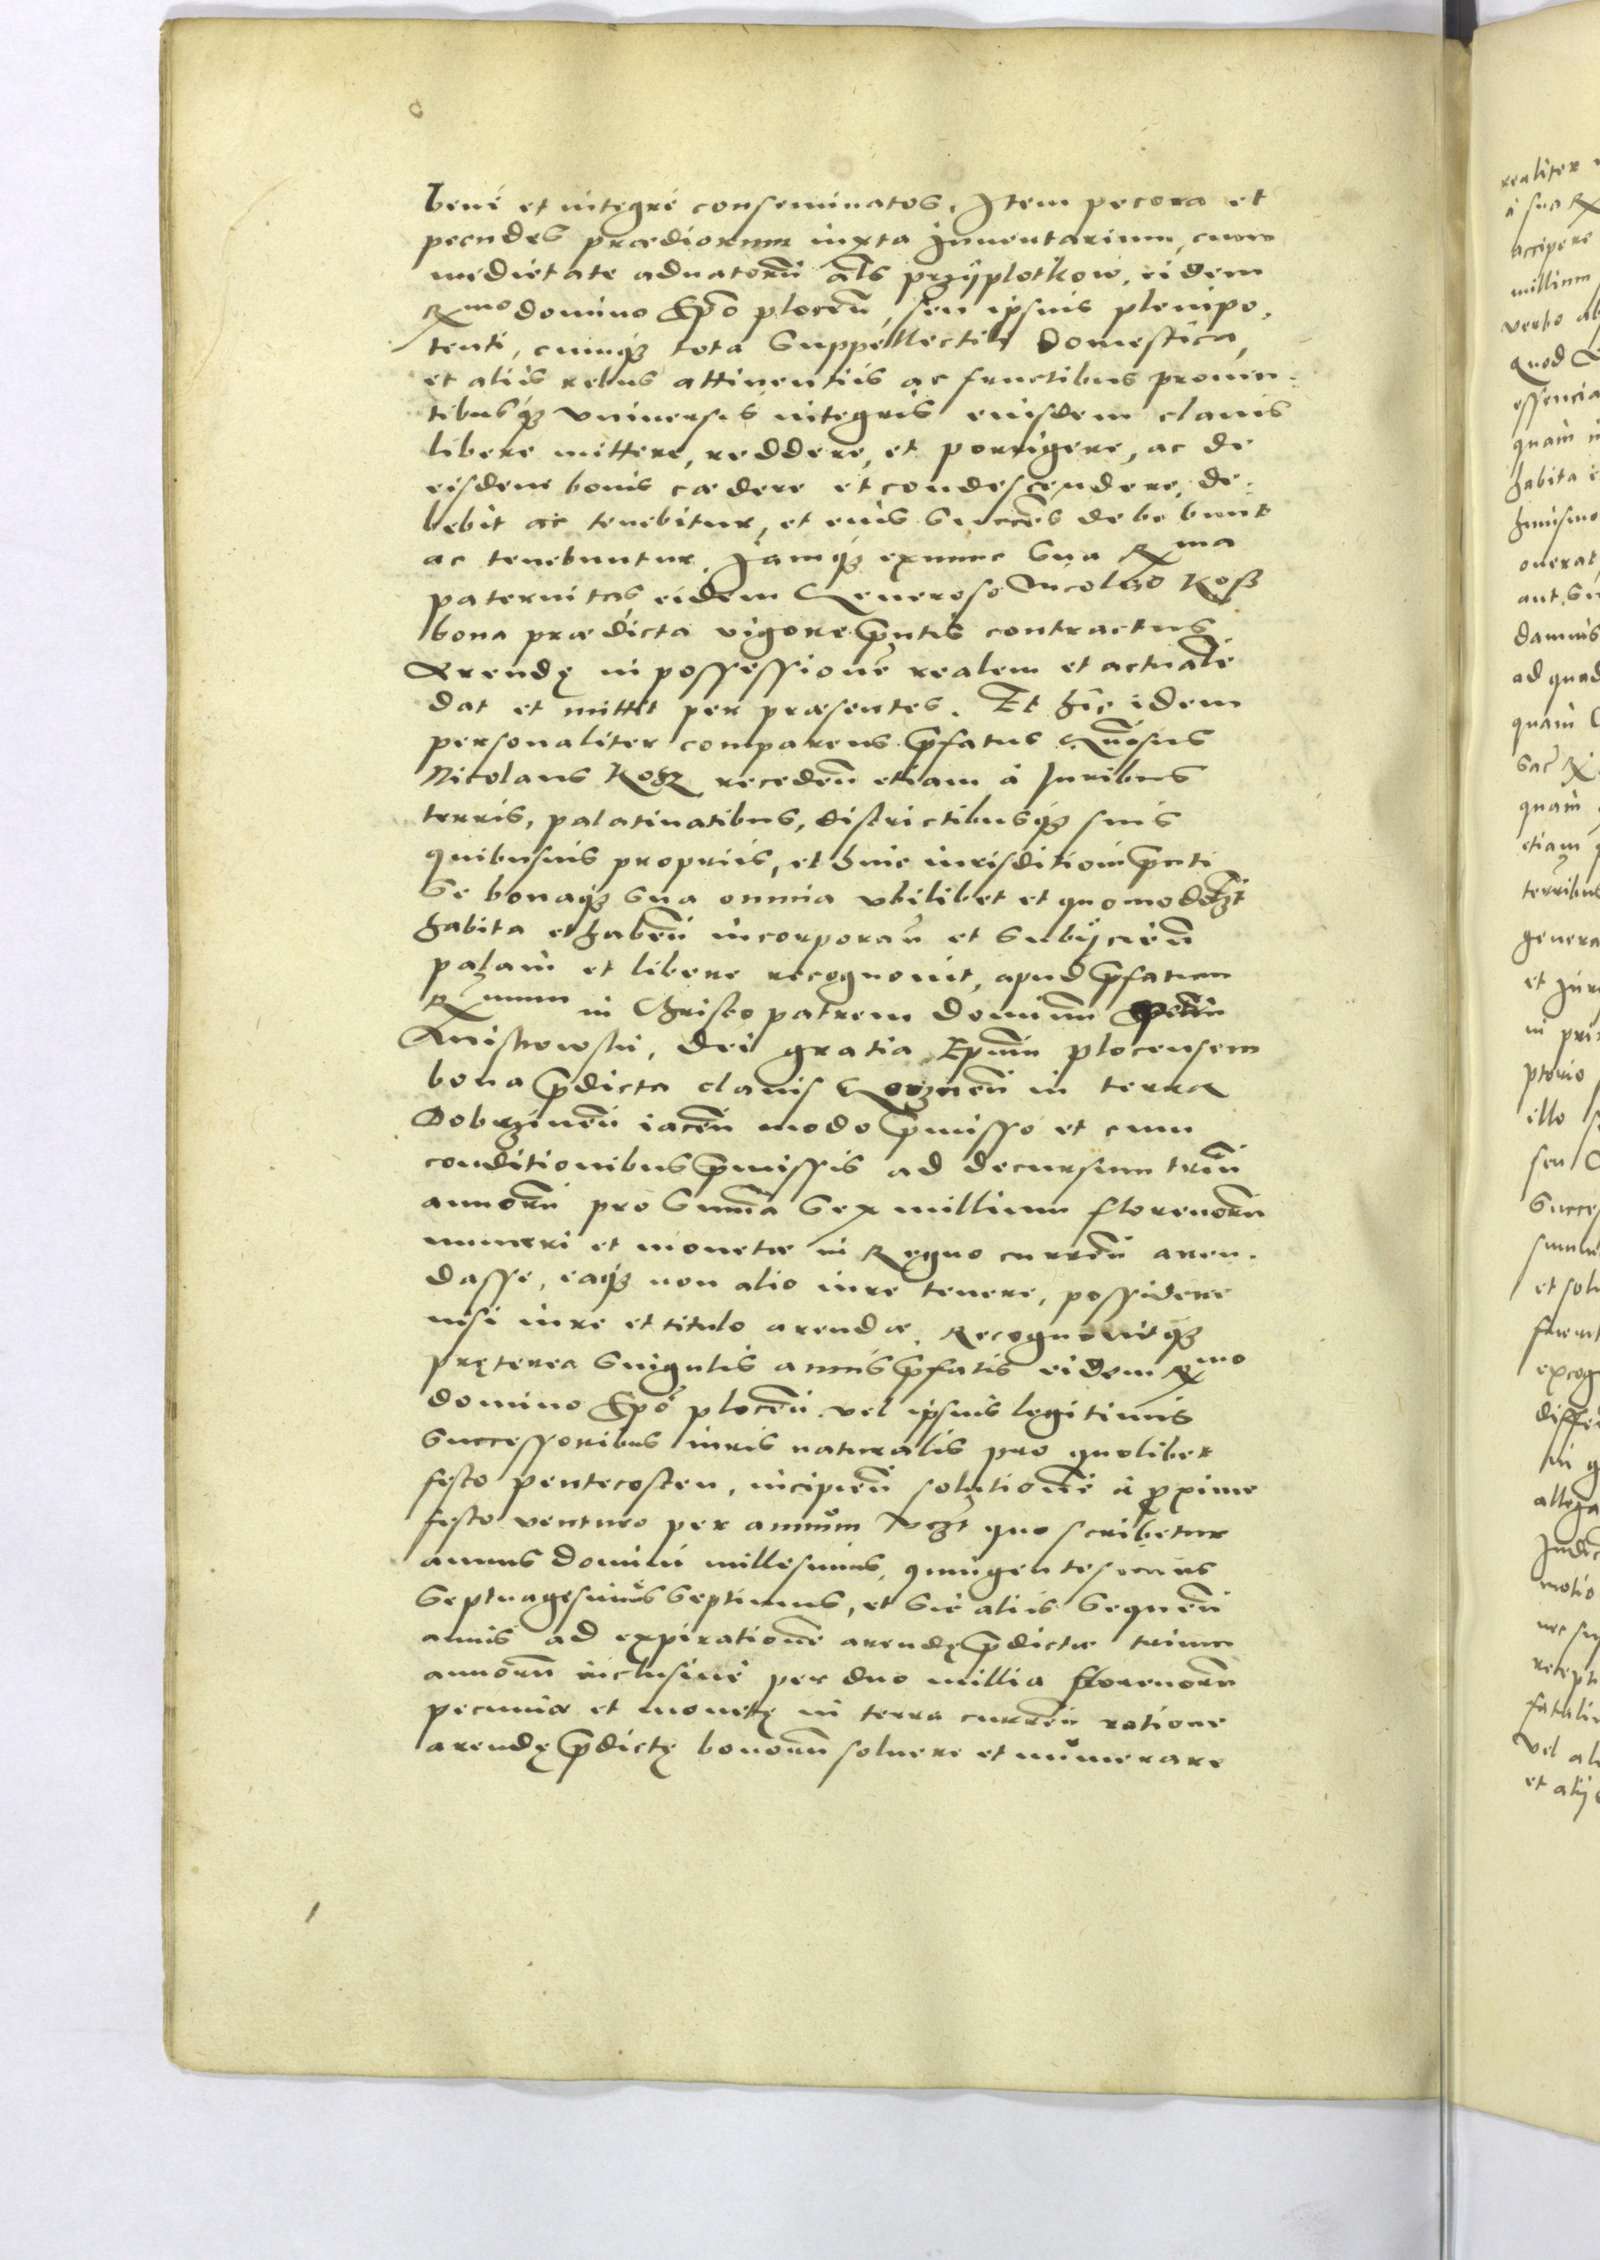 bene et integre conseminatos. Item pecora et
pecudes prædiorum iuxta Inuentarium, cum
medietate aduatorū als przÿplotkow, eidem
Rmo domino Epō plocēn, seu ipsius plenipo,
tenti, cumq3 tota suppellectili domestica,
et aliis rebus attinentiis ac fructibus prouen-
tibusq3 vniuersis integris eiusdem clauis
libere mittere, reddere, et porrigere, ac de
eisdem bonis cædere et condescendere, de-
bebit ac tenebitur, et eius succēs debebunt
ac tenebuntur. Iamq3 exnunc sua Rma
paternitas eidem Generoso Nicolao Kosz
bona prædicta vigore pntis contractus
Arendę in possessionē realem et actualē
dat et mittit per præsentes. Et hic idem
personaliter comparens pfatus Gnōsus
Nicolaus Kosz recedēn etiam à Iuribus
terris, palatinatibus, districtibusq3 suis
quibusuis propriis, et huic iurisditioni pnti
se bonaq3 sua omnia vbilibet et quomodolzt
habita et habēn incorporan̄ et subÿciēn
palam et libere recognouit, apud pfatum
Rmum in Christo patrem dominum Petrū
dei gratia Epūm plocensem
bona pdicta clauis Gorznēn in terra
Dobrzinēn iacēn modo pmisso et cum
conditionibus pmissis ad decursum triū
annorū pro summa sex millium florenorū
numeri et monetæ in Regno currēn aren-
dasse, eaq3 non alio iure tenere, possidere
nisi iure et titulo arendæ. Recognouitq3
pręterea singulis annis pfatis eidem Rmo
domino Epō plocēn vel ipsius legitimis
successoribus iuris naturalis pro quolibet
festo pentecosten, incipiēn solutionē à proxime
festo venturo per annum quo scribetur
annus domini millesimus, quingentesimus
septuagesimus septimus, et sic aliis sequēn
annis ad expirationē arendę pdictæ trium
annorū inclusiue per duo millia florenorū
pecuniæ et monetę in terra currēn ratione
arendę pdictę bonorū soluere et numerare